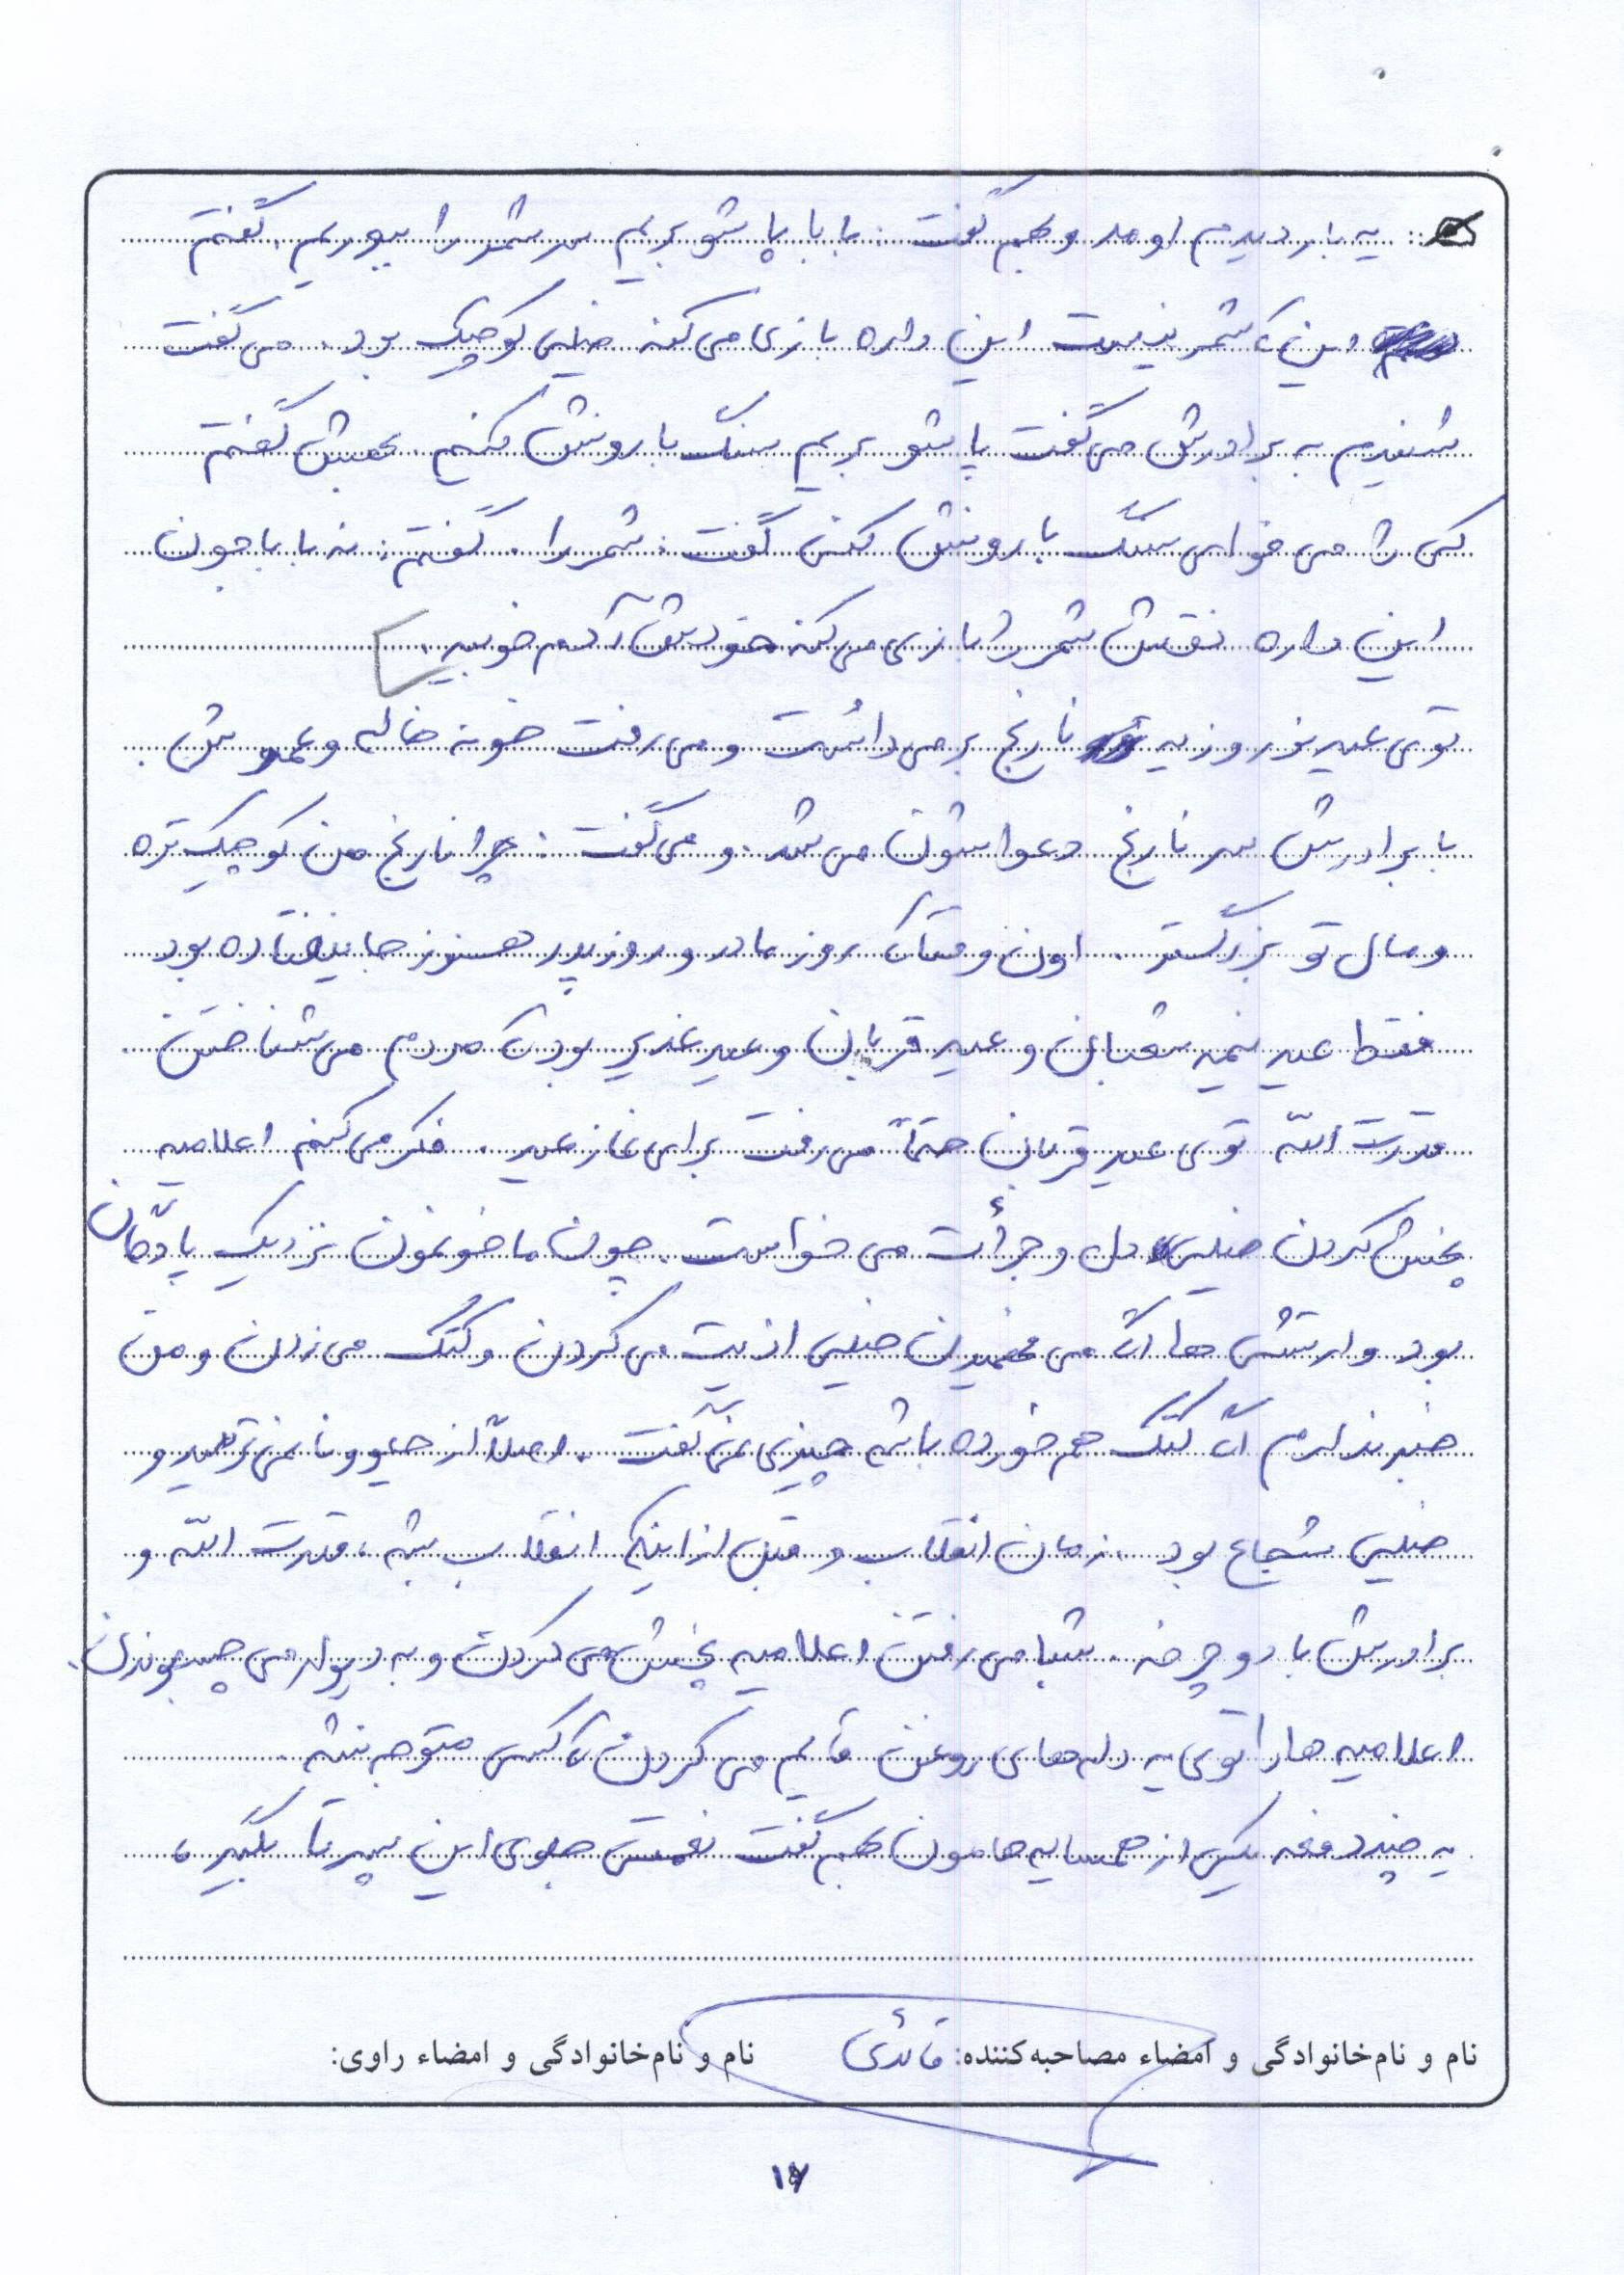 یه بار دیدم اومد و بهم گفت: بابا پاشو بریم سر شمر را ببوریم. گفتم
این که شمر نیست این داره بازی می‌کنه خیلی کوچیک بود. می‌گفت
شنیدم به برادرش می‌گفت پاشو بریم سنگ بارونش کنیم. بهش گفتم
کی را می‌خوای سنگ بارونش کنی گفت: شمر را. گفتم: نه باباجون
این داره نقش شمر را بازی می‌کنه خودش آدم خوبیه.
توی عید نوروز یه نارنج برمی‌داشت و می‌رفت خونه خاله و عموش.
با برادرش سر نارنج دعواشون می‌شد. و می‌گفت: چرا نارنج من کوچیک‌تره
و مال تو بزرگتر. اون وقتا که روز مادر و روز پدر هنوز جا نیفتاده بود
فقط عید نیمه شعبان و عید قربان و عید غدیر بود که مردم می‌شناختن.
قدرت الله توی عید قربان حتماً می‌رفت برای نماز عید. فکر می‌کنم اعلامیه
پخش کردن خیلی دل و جرأت می‌خواست. چون ما خونمون نزدیک پادگان
بود و ارتشی‌ها اگه می‌فهمیدن خیلی اذیت می‌کردن و کُتک می‌زدن و من
خبر ندارم اگه کتک هم خورده باشه چیزی نمی‌گفت. اصلاً از حیوونا نمی‌ترسید و
خیلی شجاع بود. زمان انقلاب و قبل از اینکه انقلاب بشه، قدرت الله و
برادرش با دوچرخه. شبا می‌رفتن اعلامیه پخش می‌کردن و به دیوار می‌چسبوندن.
اعلامیه‌ها را توی یه دله‌های روغن قایم می‌کردن که کسی متوجه نشه.
یه چند دفعه یکی از همسایه‌هامون بهم گفت نعمت جلوی این پسرتا بگیر،
نام و نام‌خانوادگی و امضاء مصاحبه‌کننده: قائدی نام و نام‌خانوادگی و امضاء راوی:
۱۷